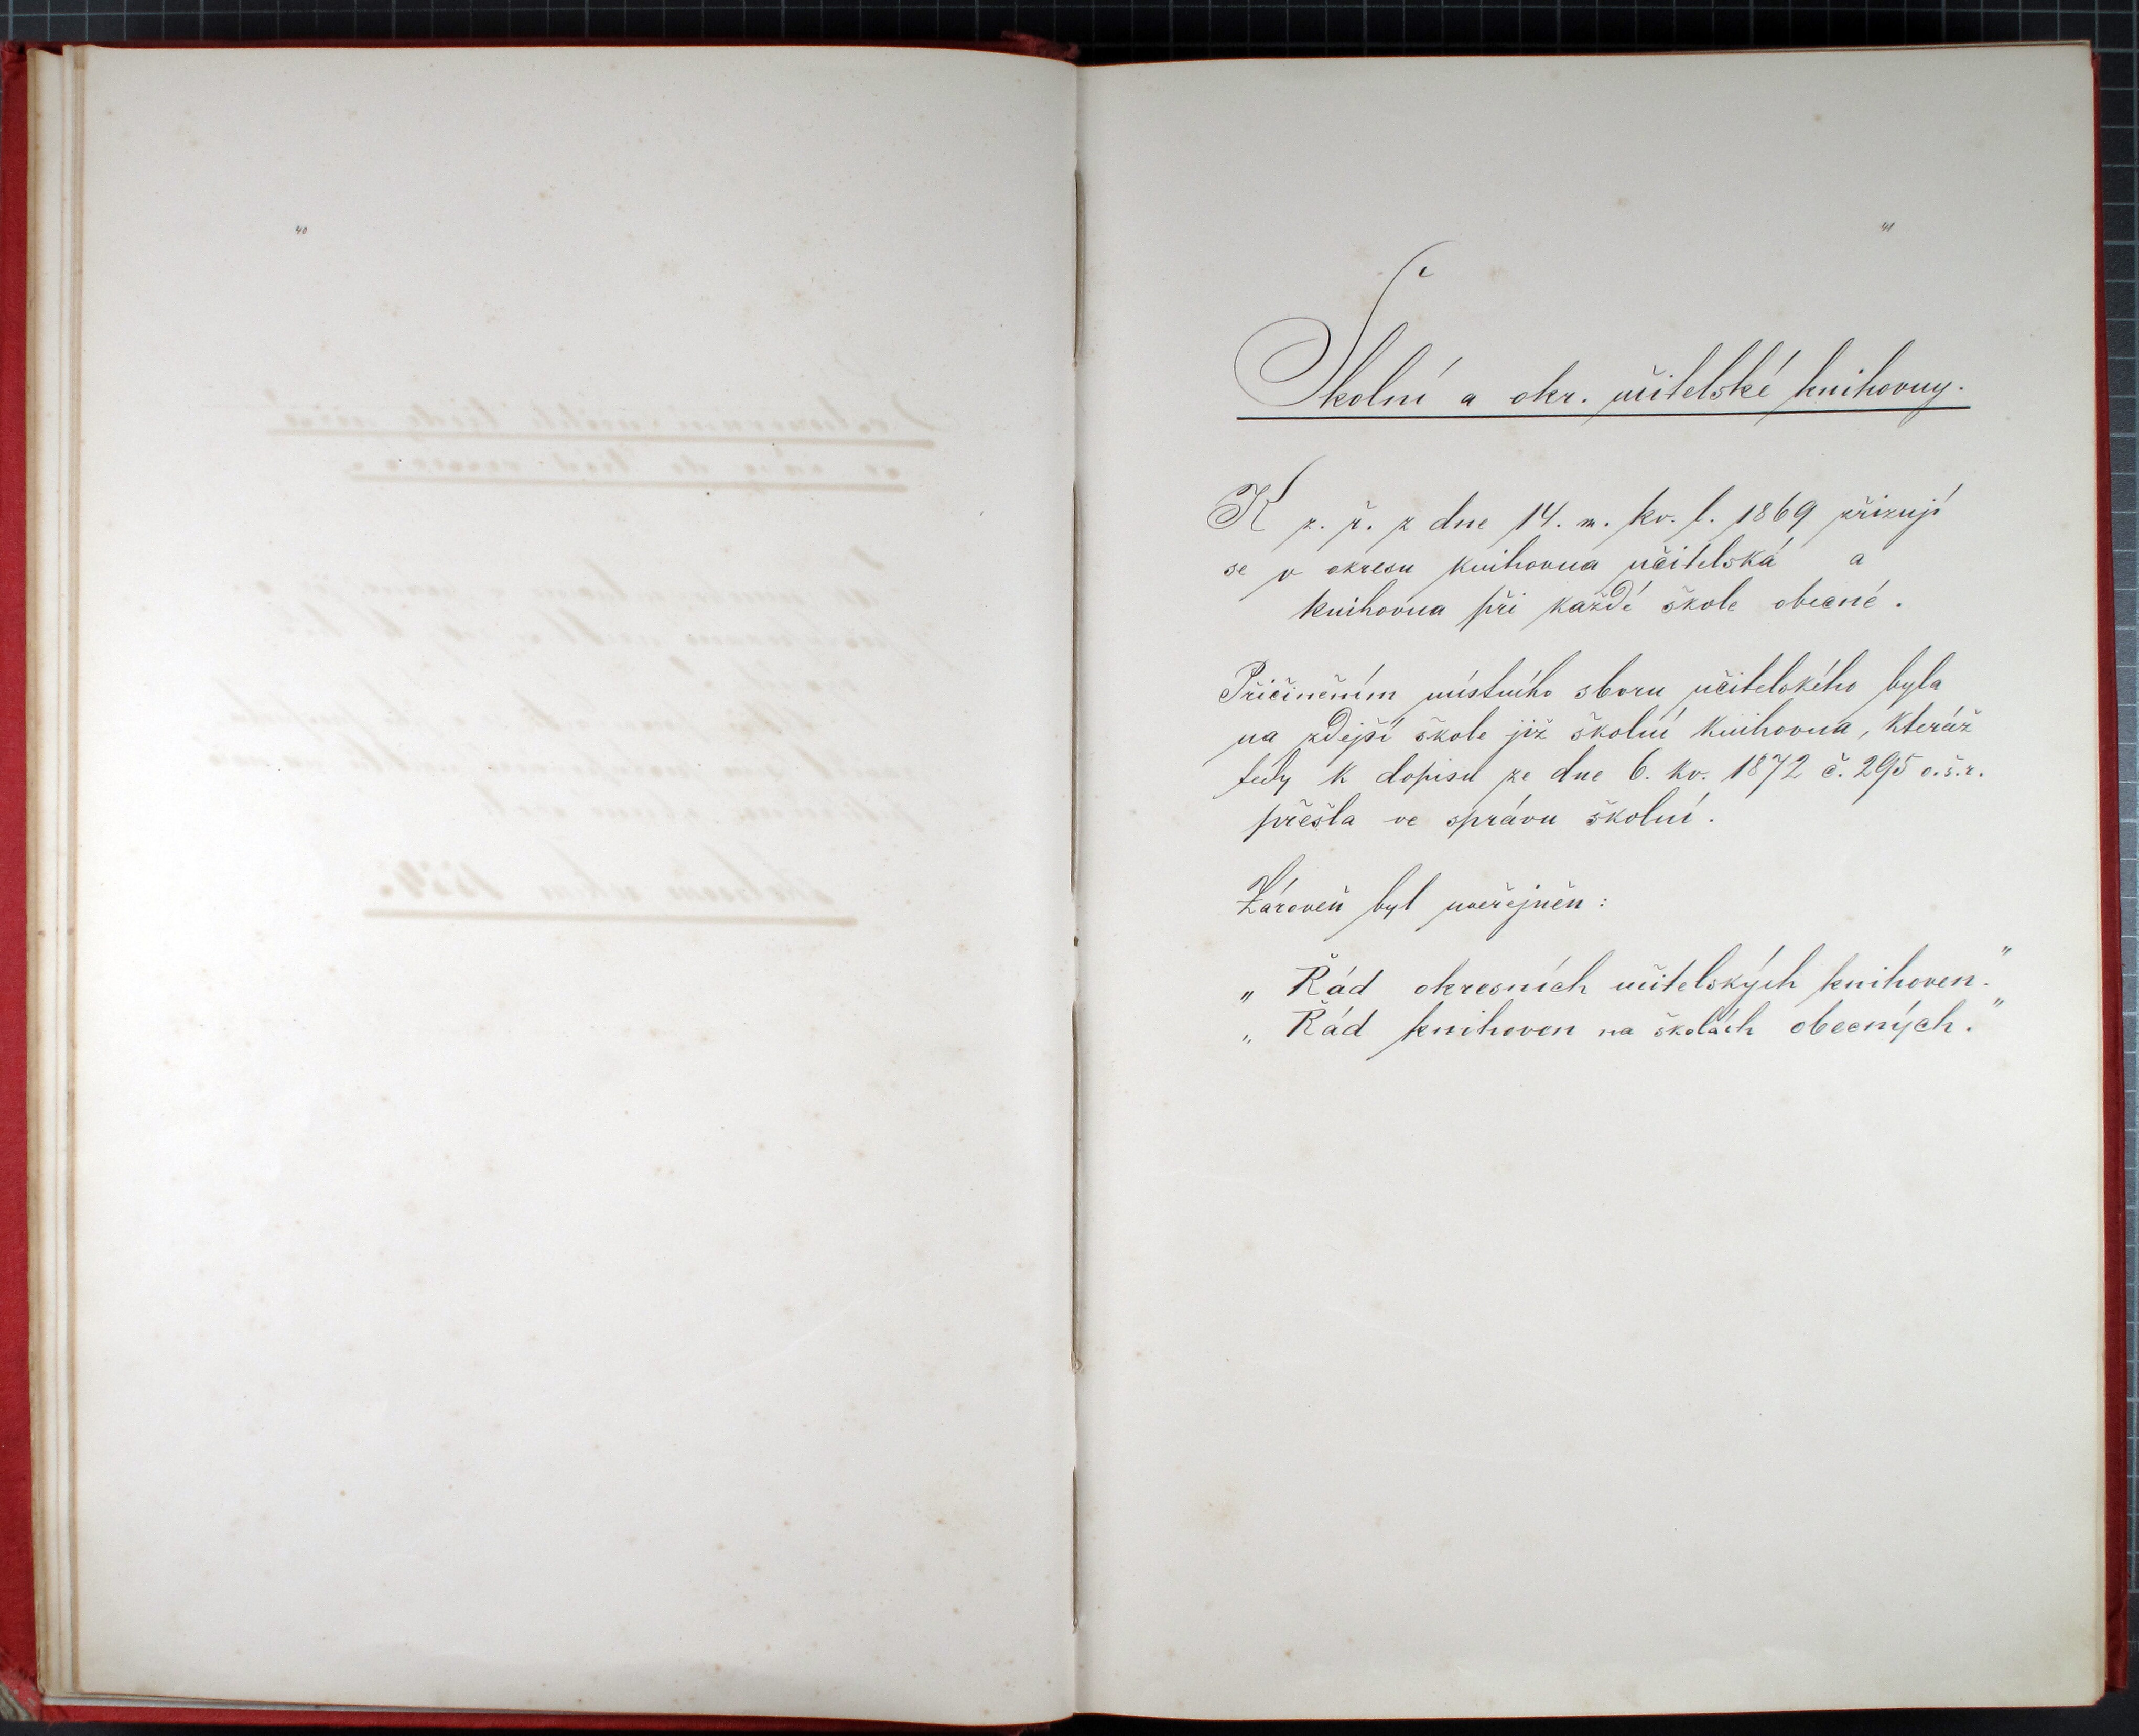 40
41
Školní a okr. učitelské knihovny.
K z. ř. z dne 14. m. kv. l. 1869 zřizují
se v okresu knihovna učitelská a
knihovna při každé škole obecné.
Přičiněním místního sboru učitelského byla
na zdejší škole již školní knihovna, kteráž
tedy k dopisu ze dne 6. kv. 1872 č. 295 o.š.r.
přešla ve správu školní.
Zároveň byl uveřejněn:
„Řád okresních učitelských knihoven."
„Řád knihoven na školách obecných."